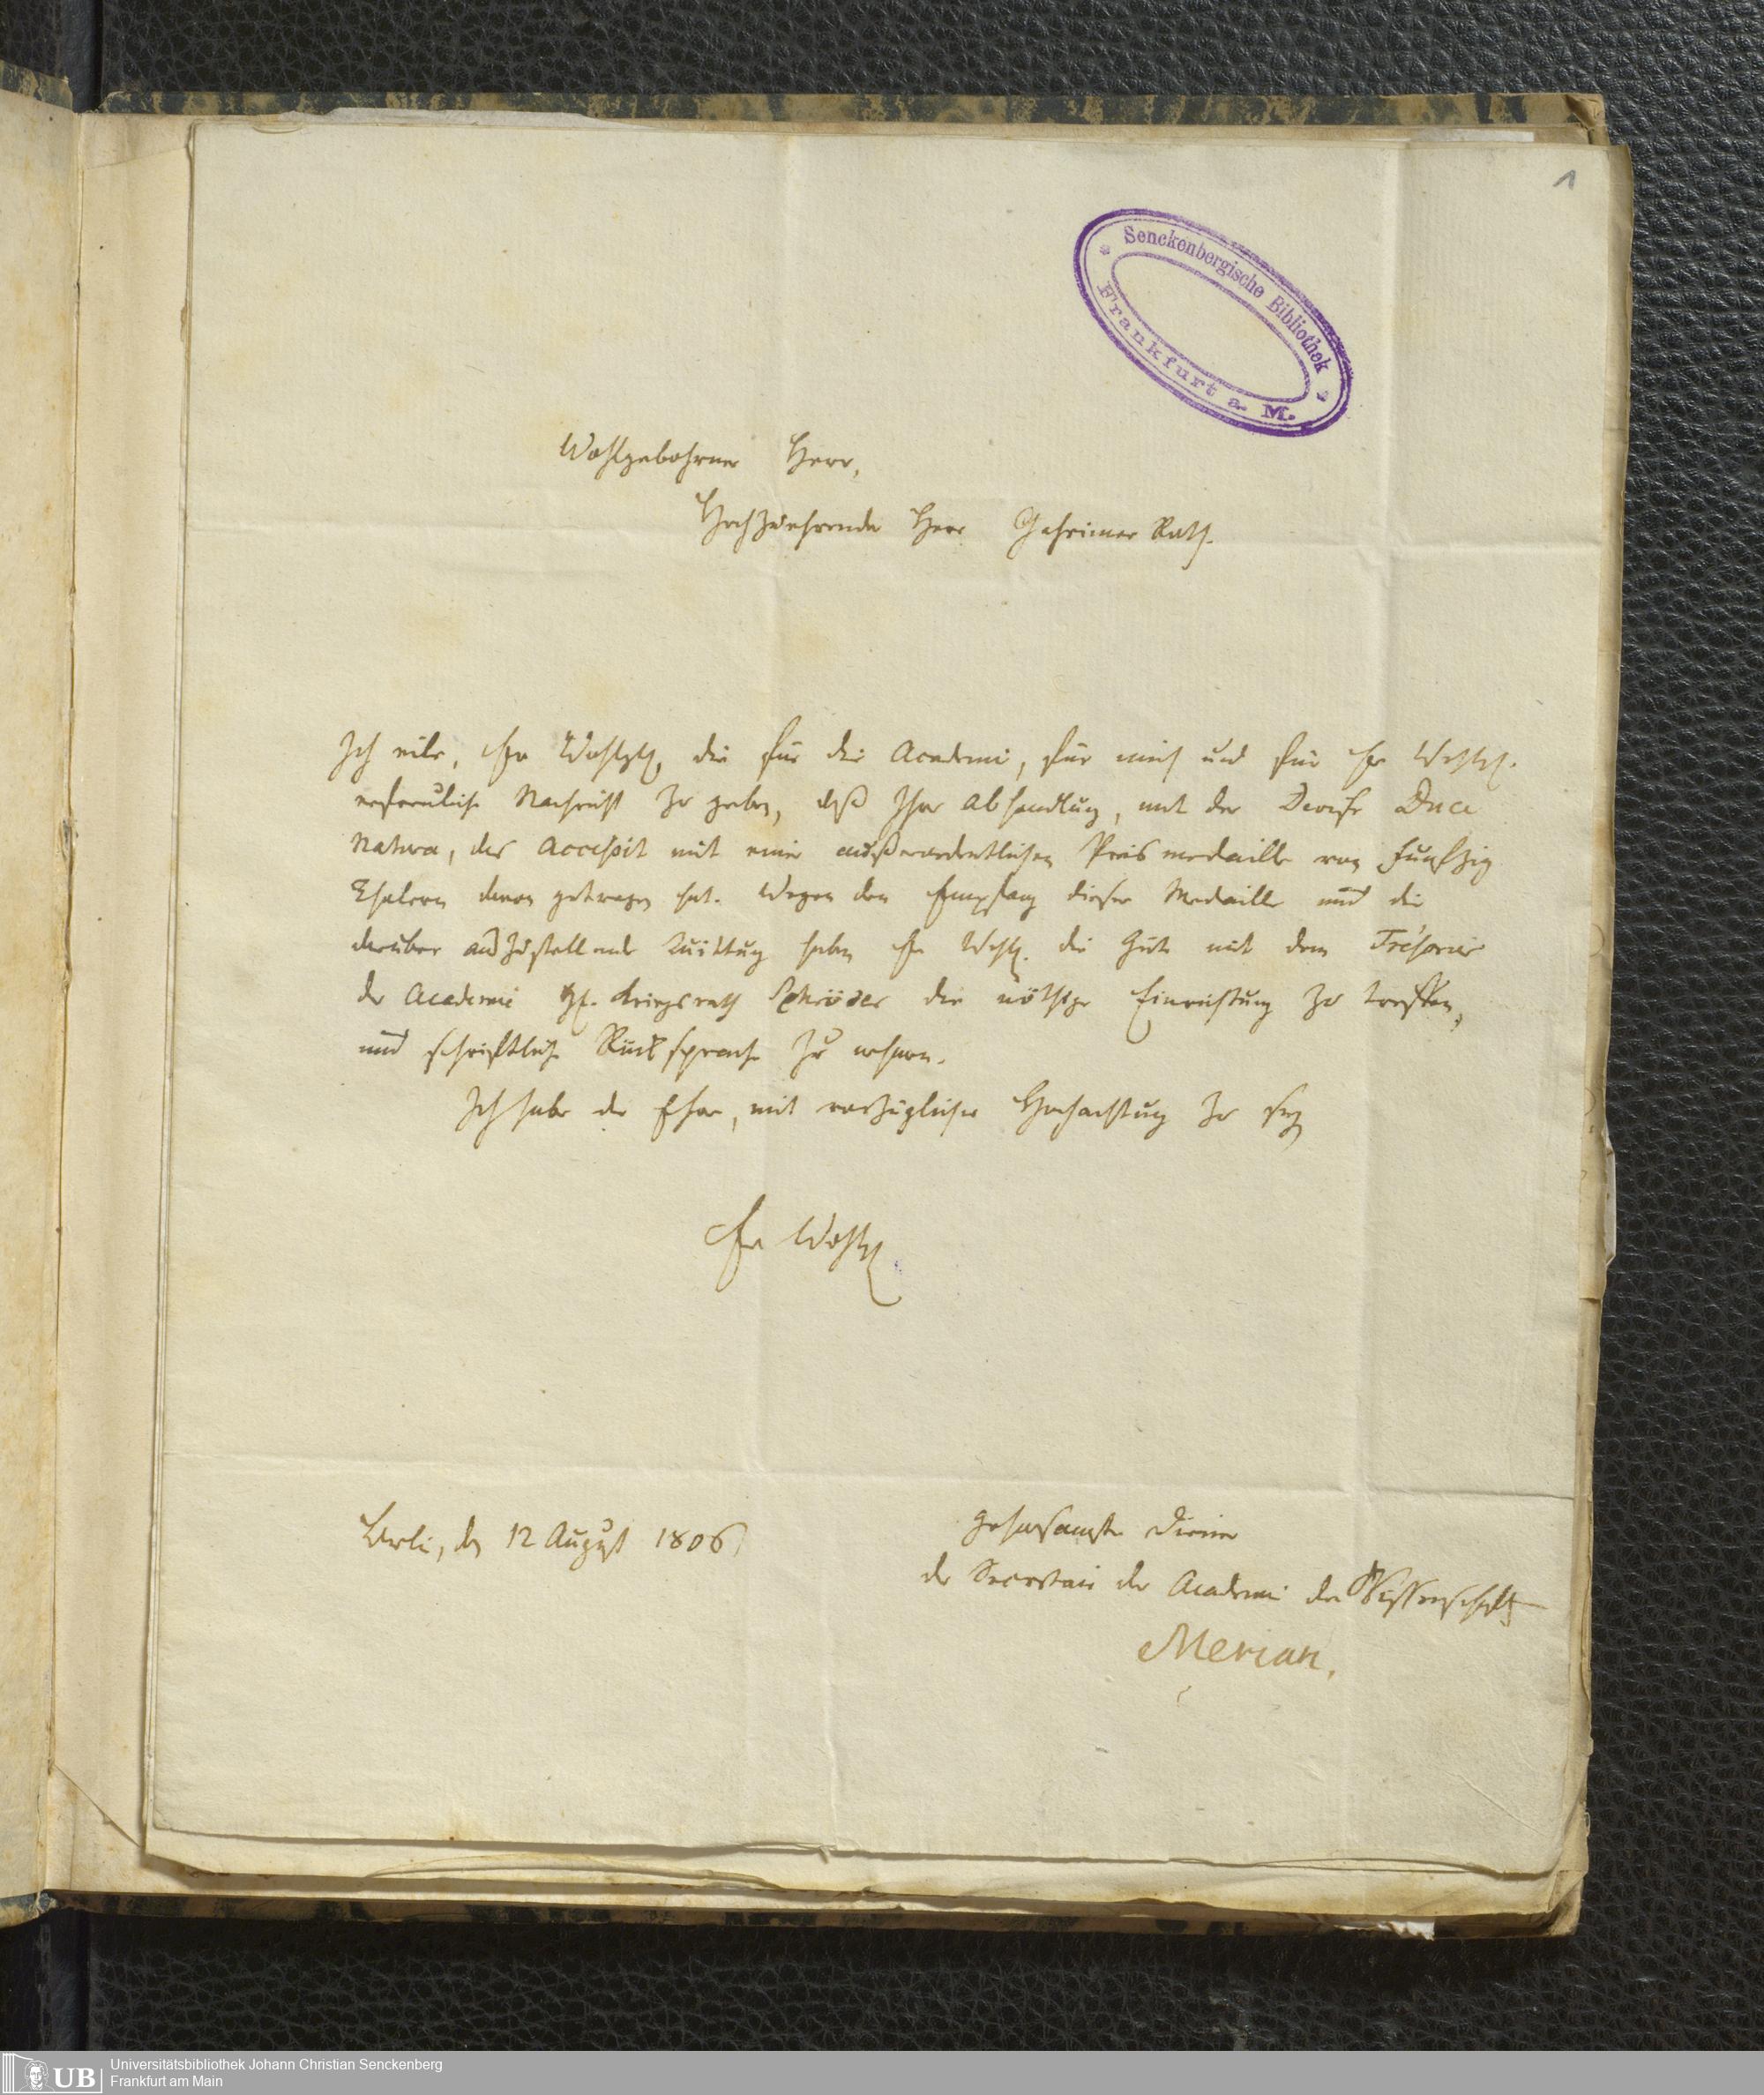 1
Senckenbergische Bibliothek
Frankfurt a. M.
Wohlgebohrner Herr,
Hochzuehrender Herr Geheimer Rath.
Ich eile, Ew Wohlgb, die für die Academie, für mich und für Ew Wohlgb.
erfreuliche Nachricht zu geben, daß Ihre Abhandlung, mit der Devise Duce
Natura, das Accessit mit einer außerordentlichen Preismedaille von Funfzig
Thalern davon getragen hat. Wegen den Empfang dieser Medaille und die
darüber auszustellende Quittung haben Ew Wohlg. die Güte mit dem Trésorier
der Academie Hr. Kriegsrath Schröder die nöthige Einrichtung zu treffen,
und schriftliche Rücksprache zu nehmen.
Ich habe die Ehre, mit vorzüglicher Hochachtung zu seyn
Ew Wohlg
Berlin, den 12 August 1806
gehorsamster Diener
der Secretair der Academie der Wissenschaften
Merian.
UB
Universitätsbibliothek Johann Christian Senckenberg
Frankfurt am Main